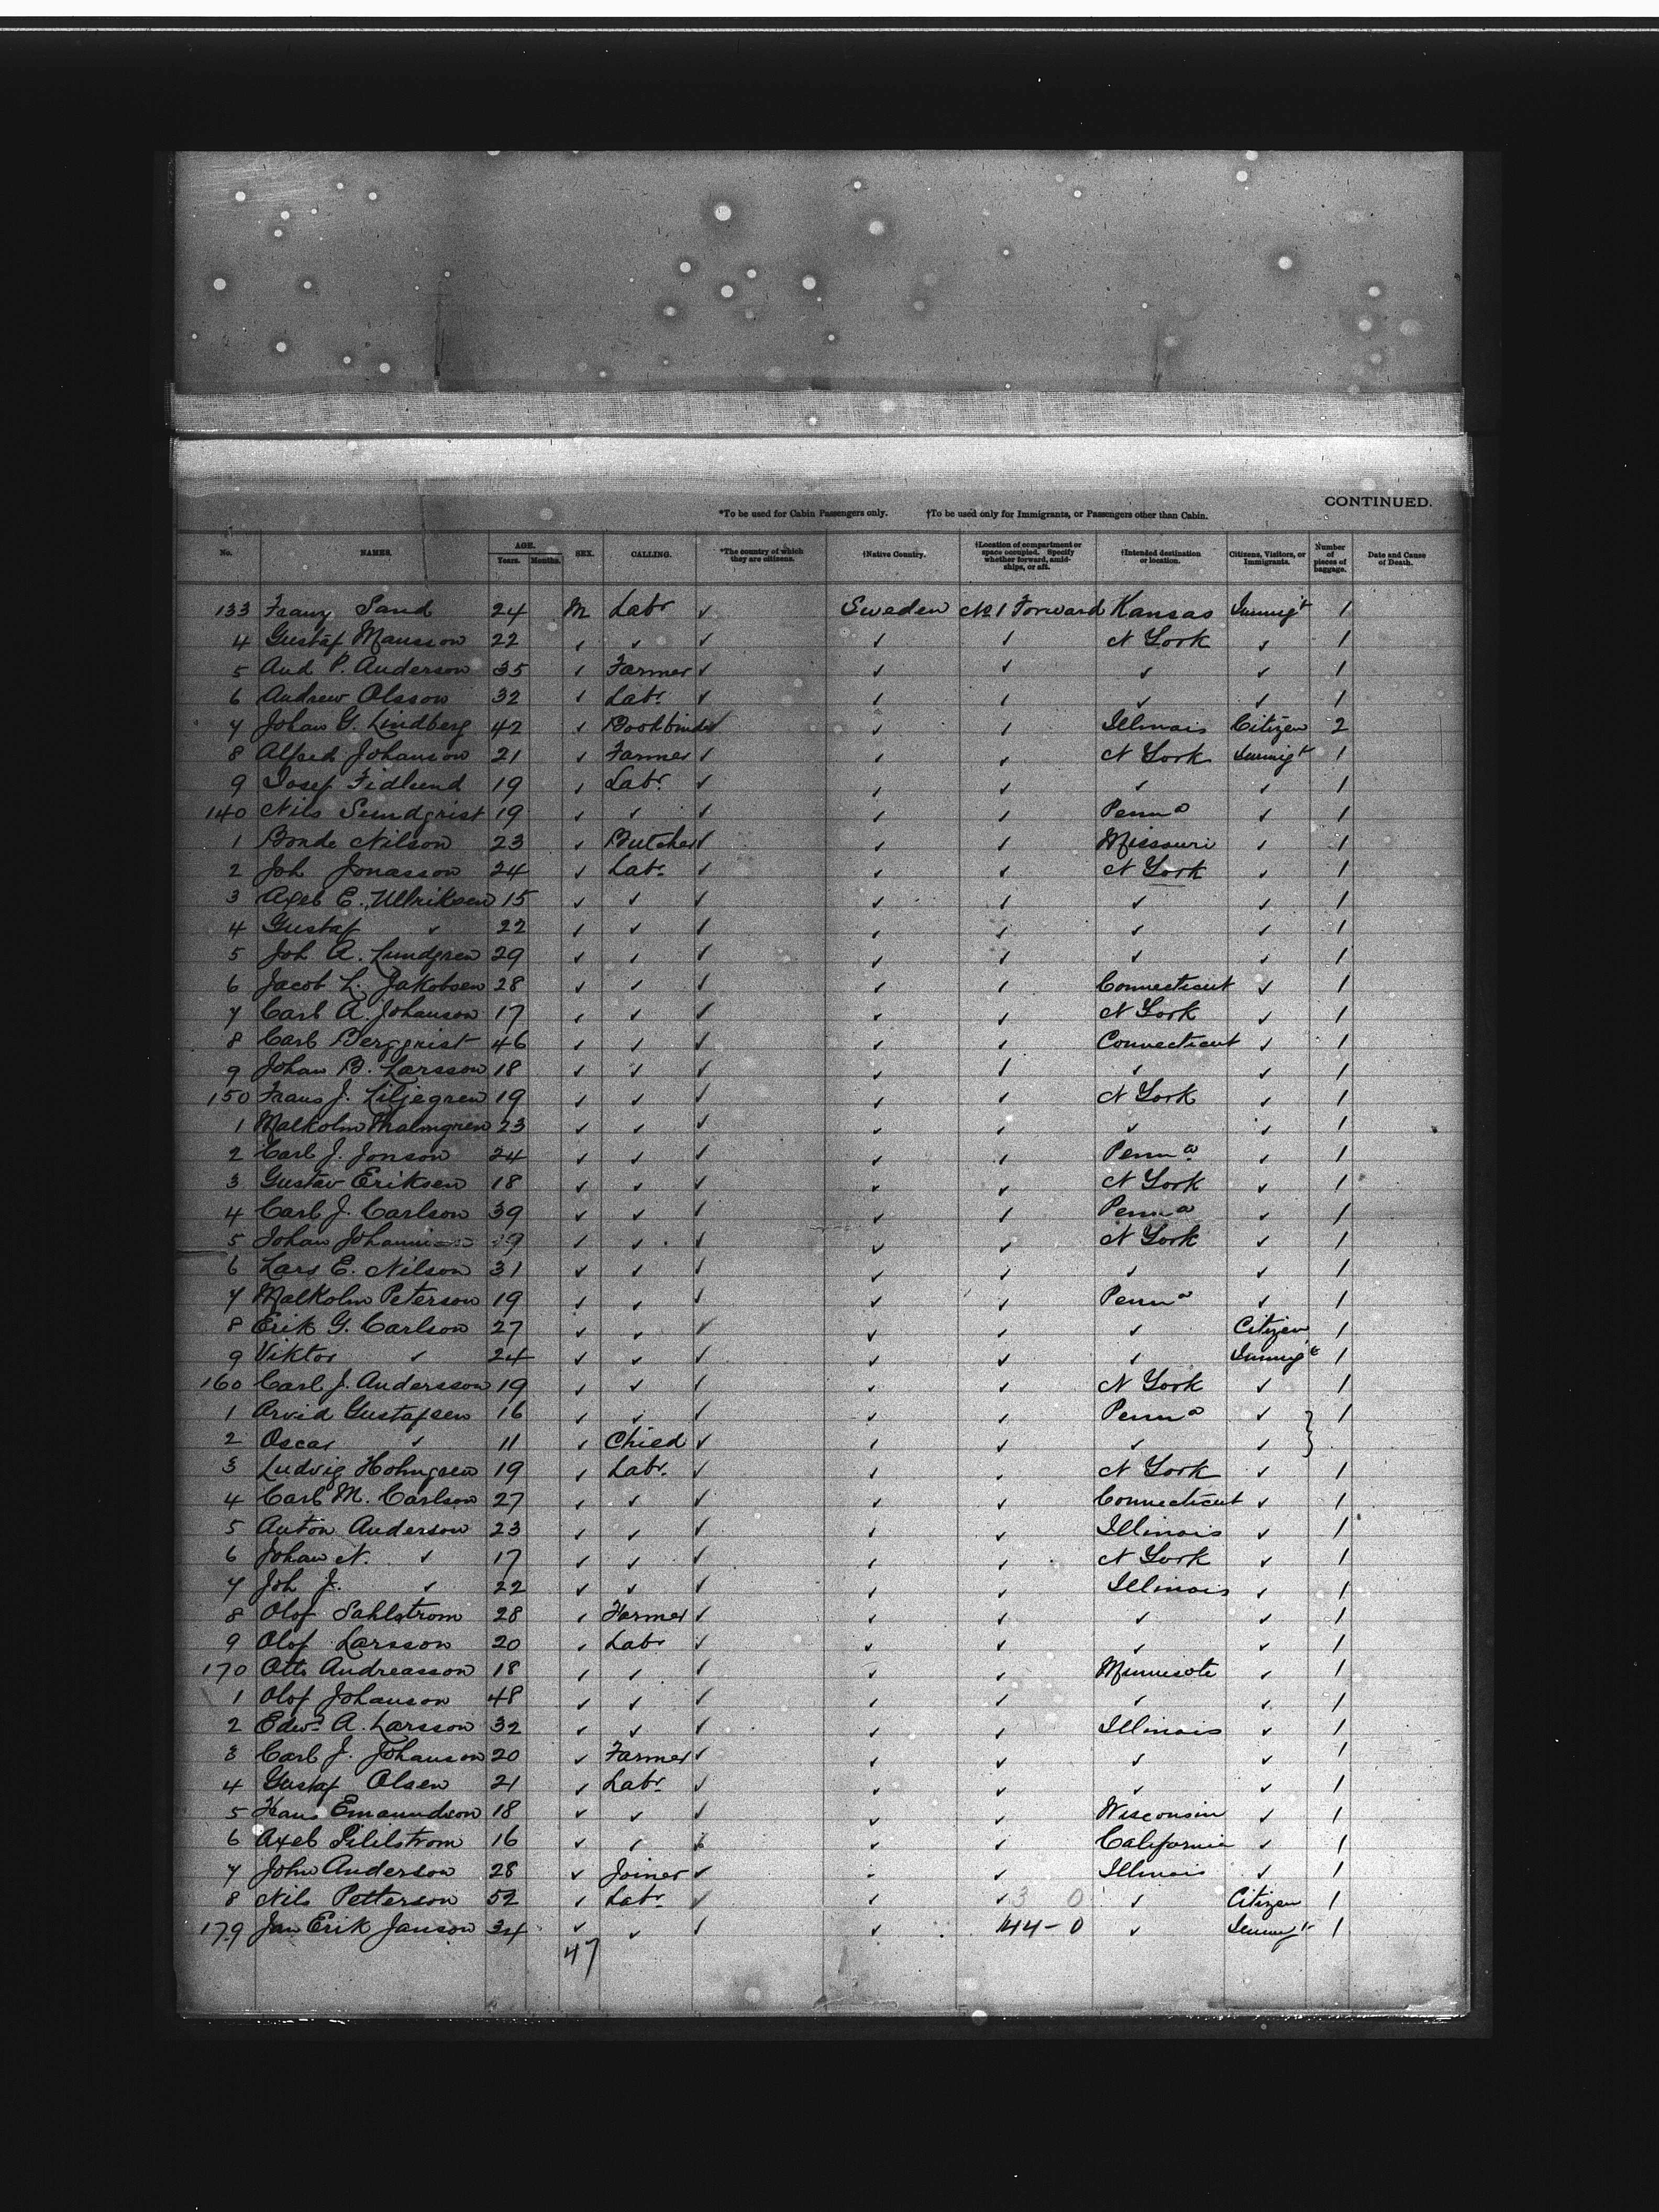 CONTINUED.
*To be used for Cabin Passengers only. †To be used only for Immigrants, or Passengers other than Cabin.
No. NAMES. AGE. Years. Months. SEX. CALLING. *The country of which they are citizens. †Native Country. †Location of compartment or space occupied. Specify whether forward, amidships, or aft. †Intended destination or location. Citizens, Visitors, or Immigrants. Number of pieces of baggage. Date and Cause of Death.
133 Franz Sand 24 M Labr ✓ Sweden No 1 Forward Kansas Immigt 1
4 Gustaf Mansson 22 ✓ ✓ ✓ ✓ ✓ N York ✓ 1
5 And P. Anderson 35 ✓ Farmer ✓ ✓ ✓ ✓ ✓ 1
6 Andrew Olsson 32 ✓ Labr ✓ ✓ ✓ ✓ ✓ 1
7 Johan G. Lindberg 42 ✓ Bookbinder ✓ ✓ ✓ Illinois Citizen 2
8 Alfred Johanson 21 ✓ Farmer ✓ ✓ ✓ N York Immigt 1
9 Josef Fidlund 19 ✓ Labr ✓ ✓ ✓ ✓ ✓ 1
140 Nils Sundqrist 19 ✓ ✓ ✓ ✓ ✓ Penna ✓ 1
1 Bonde Nilson 23 ✓ Butcher ✓ ✓ ✓ Missouri ✓ 1
2 Joh Jonasson 24 ✓ Labr ✓ ✓ ✓ N York ✓ 1
3 Axel E. Ullriksen 15 ✓ ✓ ✓ ✓ ✓ ✓ ✓ 1
4 Gustaf ✓ 22 ✓ ✓ ✓ ✓ ✓ ✓ ✓ 1
5 Joh A. Lundgren 29 ✓ ✓ ✓ ✓ ✓ ✓ ✓ 1
6 Jacob L. Jakobsen 28 ✓ ✓ ✓ ✓ ✓ Connecticut ✓ 1
7 Carl A. Johanson 17 ✓ ✓ ✓ ✓ ✓ N York ✓ 1
8 Carl Bergqrist 46 ✓ ✓ ✓ ✓ ✓ Connecticut ✓ 1
9 Johan B. Larsson 18 ✓ ✓ ✓ ✓ ✓ ✓ ✓ 1
150 Frans J. Liljegren 19 ✓ ✓ ✓ ✓ ✓ N York ✓ 1
1 Malkolm Malmgrien 23 ✓ ✓ ✓ ✓ ✓ ✓ ✓ 1
2 Carl J. Jonson 24 ✓ ✓ ✓ ✓ ✓ Penna ✓ 1
3 Gustav Eriksen 18 ✓ ✓ ✓ ✓ ✓ N York ✓ 1
4 Carl J. Carlson 39 ✓ ✓ ✓ ✓ ✓ Penna ✓ 1
5 Johan ✓ ✓ ✓ ✓ ✓ N York ✓ 1
6 Lars E. Nilson 31 ✓ ✓ ✓ ✓ ✓ ✓ ✓ 1
7 Malkolm Peterson 19 ✓ ✓ ✓ ✓ ✓ Penna ✓ 1
8 Erik G. Carlson 27 ✓ ✓ ✓ ✓ ✓ ✓ Citizen 1
9 Viktor ✓ 24 ✓ ✓ ✓ ✓ ✓ ✓ Immigt 1
160 Carl J. Andersson 19 ✓ ✓ ✓ ✓ ✓ N York ✓ 1
1 Arvid Gustafsen 16 ✓ ✓ ✓ ✓ ✓ Penna ✓ } 1
2 Oscar ✓ 11 ✓ Child ✓ ✓ ✓ ✓ ✓
3 Ludvig Holmgren 19 ✓ Labr ✓ ✓ ✓ N York ✓ 1
4 Carl M. Carlson 27 ✓ ✓ ✓ ✓ ✓ Connecticut ✓ 1
5 Anton Anderson 23 ✓ ✓ ✓ ✓ ✓ Illinois ✓ 1
6 Johan N. ✓ 17 ✓ ✓ ✓ ✓ ✓ N York ✓ 1
7 Joh J. ✓ 22 ✓ ✓ ✓ ✓ ✓ Illinois ✓ 1
8 Olof Sahlstrom 28 ✓ Farmer ✓ ✓ ✓ ✓ ✓ 1
9 Olof Larsson 20 ✓ Labr ✓ ✓ ✓ ✓ ✓ 1
170 Otto Andreasson 18 ✓ ✓ ✓ ✓ ✓ Minnesota ✓ 1
1 Olof Johanson 48 ✓ ✓ ✓ ✓ ✓ ✓ ✓ 1
2 Edwd A. Larsson 32 ✓ ✓ ✓ ✓ ✓ Illinois ✓ 1
3 Carl J. Johanson 20 ✓ Farmer ✓ ✓ ✓ ✓ ✓ 1
4 Gustaf Olsen 21 ✓ Labr ✓ ✓ ✓ ✓ ✓ 1
5 Hans Emanudson 18 ✓ ✓ ✓ ✓ ✓ Wisconsin ✓ 1
6 Axel 16 ✓ ✓ ✓ ✓ ✓ California ✓ 1
7 John Anderson 28 ✓ Joiner ✓ ✓ ✓ Illinois ✓ 1
8 Nils Petterson 52 ✓ Labr ✓ ✓ ✓ 3 0 ✓ Citizen 1
179 Jan Erik Janson 34 ✓ ✓ ✓ ✓ 144-0 ✓ Immigt 1
47